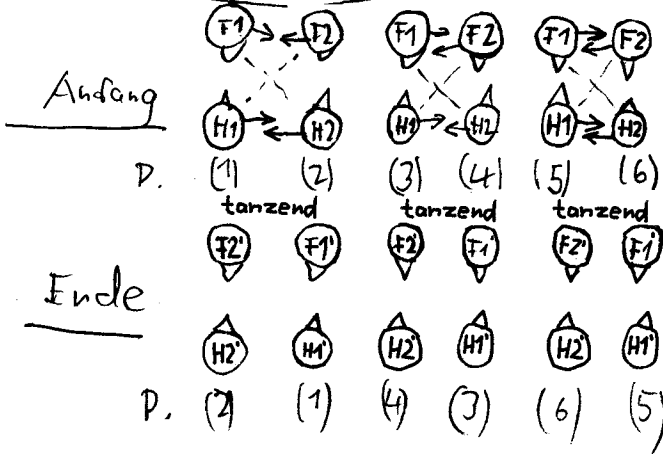 F1 F2 F1 F2 F1 F2
Anfang
H1 H2 H1 H2 H1 H2
P. (1) (2) (3) (4) (5) (6)
tanzend tanzend tanzend
F2' F1' F2' F1' F2' F1'
Ende
H2' H1' H2' H1' H2' H1'
P. (2) (1) (4) (3) (6) (5)